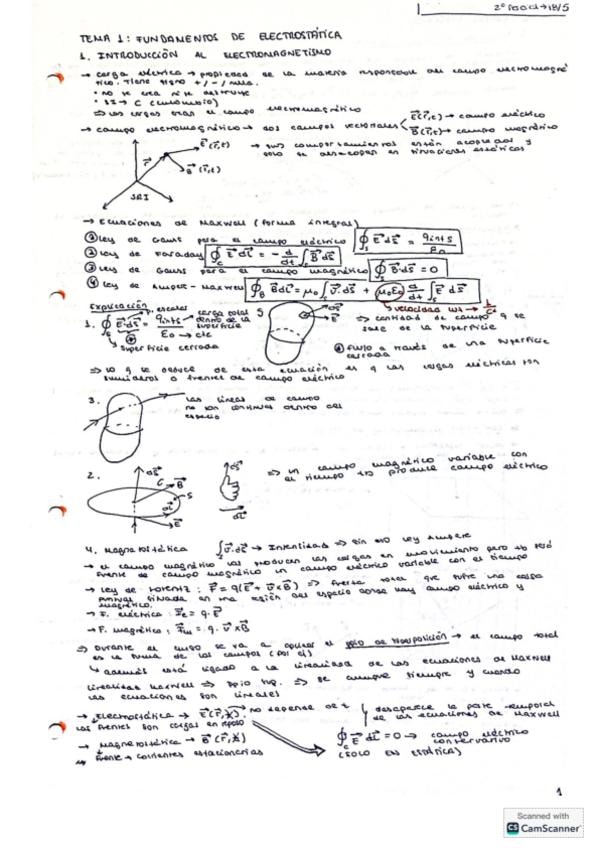 2º Parcial → 18/5
TEMA 1: FUNDAMENTOS DE ELECTROSTÁTICA
1. INTRODUCCIÓN AL ELECTROMAGNETISMO
→ carga eléctrica → propiedad de la materia responsable del campo electromagné
tico. Tiene signo + / - / nula.
• no se crea ni se destruye
• SI → C (culombio)
⇒ las cargas crean el campo electromagnético
→ campo electromagnético → dos campos vectoriales
E⃗(r⃗,t) → campo eléctrico
B⃗(r⃗,t) → campo magnético
E⃗(r⃗,t)
r⃗
B⃗(r⃗,t)
→ sus comportamientos están acoplados y
solo se desacoplan en situaciones estáticas
SRI
→ Ecuaciones de Maxwell (forma integral)
① Ley de Gauss para el campo eléctrico ∮s E⃗ ds⃗ = qint s / ε0
② Ley de Faraday ∮c E⃗ dl⃗ = - d/dt ∫s B⃗ ds⃗
③ Ley de Gauss para el campo magnético ∮s B⃗·ds⃗ = 0
④ Ley de Ampere-Maxwell ∮B B⃗dl⃗ = μ0 ∫s J⃗·ds⃗ + μ0ε0 d/dt ∫s E⃗ ds⃗
velocidad luz → 1/c²
Explicación
1. ∮s E⃗·ds⃗ = qint s / ε0 → cte
p. escalar
carga total
dentro de la
superficie
superficie cerrada
S
ds⃗
E⃗
⇒ cantidad de campo q se
sale de la superficie
flujo a través de una superficie
cerrada
⇒ lo q se deduce de esta ecuación es q las cargas eléctricas son
sumideros o fuentes de campo eléctrico
3.
las líneas de campo
no son continuas dentro del
espacio
2.
ds⃗
C
B⃗
S
dl⃗
E⃗
ds⃗
dl⃗
⇒ un campo magnético variable con
el tiempo tb produce campo eléctrico
4. Magnetostática ∫s J⃗·ds⃗ → Intensidad ⇒ Ley Ampere
→ el campo magnético las producen las cargas en movimiento pero tb
fuente de campo magnético un campo eléctrico variable con el tiempo
→ Ley de Lorentz: F⃗ = q(E⃗ + v⃗×B⃗) ⇒ fuerza total que sufre una carga
puntual situada en una región del espacio donde hay campo eléctrico y
magnético.
→ F. eléctrica: F⃗e = q·E⃗
→ F. magnética: F⃗m = q·v⃗×B⃗
⇒ Durante el curso se va a aplicar el ppio de superposición → el campo total
es la suma de los campos (por ej)
↳ además está ligado a la linealidad de las ecuaciones de Maxwell
linealidad Maxwell ⇒ ppio sup. ⇒ se cumple siempre y cuando
las ecuaciones son lineales
→ Electrostática → E⃗(r⃗,t) → no depende de t
las fuentes son cargas en reposo
→ Magnetostática → B⃗(r⃗,t)
↳ Fuente → corrientes estacionarias
desaparece la parte temporal
de las ecuaciones de Maxwell
∮c E⃗ dl⃗ = 0 → campo eléctrico
conservativo
(SOLO EN ESTÁTICA)
1
Scanned with
CS CamScanner